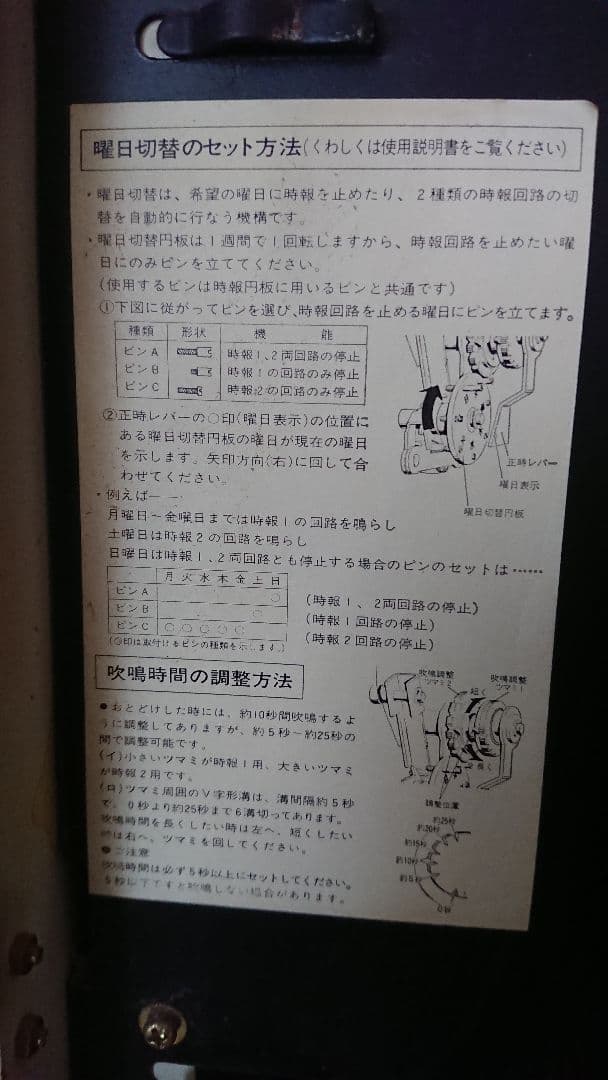 曜日切替のセット方法(くわしくは使用説明書をご覧ください)
・曜日切替は、希望の曜日に時報を止めたり、2種類の時報回路の切
替を自動的に行なう機構です。
・曜日切替円板は1週間で1回転しますから、時報回路を止めたい曜
日にのみピンを立ててください。
(使用するピンは時報円板に用いるピンと共通です)
①下図に従がってピンを選び、時報回路を止める曜日にピンを立てます。
種類 形状 機能
ピンA 時報1、2両回路の停止
ピンB 時報1の回路のみ停止
ピンC 時報2の回路のみ停止
正時レバー
曜日表示
曜日切替円板
②正時レバーの○印(曜日表示)の位置に
ある曜日切替円板の曜日が現在の曜日
を示します。矢印方向(右)に回して合
わせてください。
・例えば――
月曜日～金曜日までは時報1の回路を鳴らし
土曜日は時報2の回路を鳴らし
日曜日は時報1、2両回路とも停止する場合のピンのセットは……
月火水木金土日
ピンA ○ (時報1、2両回路の停止)
ピンB ○ (時報1回路の停止)
ピンC ○○○○○ (時報2回路の停止)
(○印は取付けるピンの種類を示します。)
吹鳴時間の調整方法
●おとどけした時には、約10秒間吹鳴するよ
うに調整してありますが、約5秒～約25秒の
間で調整可能です。
(イ)小さいツマミが時報1用、大きいツマミ
が時報2用です。
(ロ)ツマミ周囲のV字形溝は、溝間隔約5秒
で、0秒より約25秒まで6溝切ってあります。
吹鳴時間を長くしたい時は左へ、短くしたい
時は右へ、ツマミを回してください。
●ご注意
吹鳴時間は必ず5秒以上にセットしてください。
5秒以下ですと吹鳴しない場合があります。
吹鳴調整
ツマミ2
短く
吹鳴調整
ツマミ1
長く
調整位置
約25秒
約20秒
約15秒
約10秒
約5秒
0秒